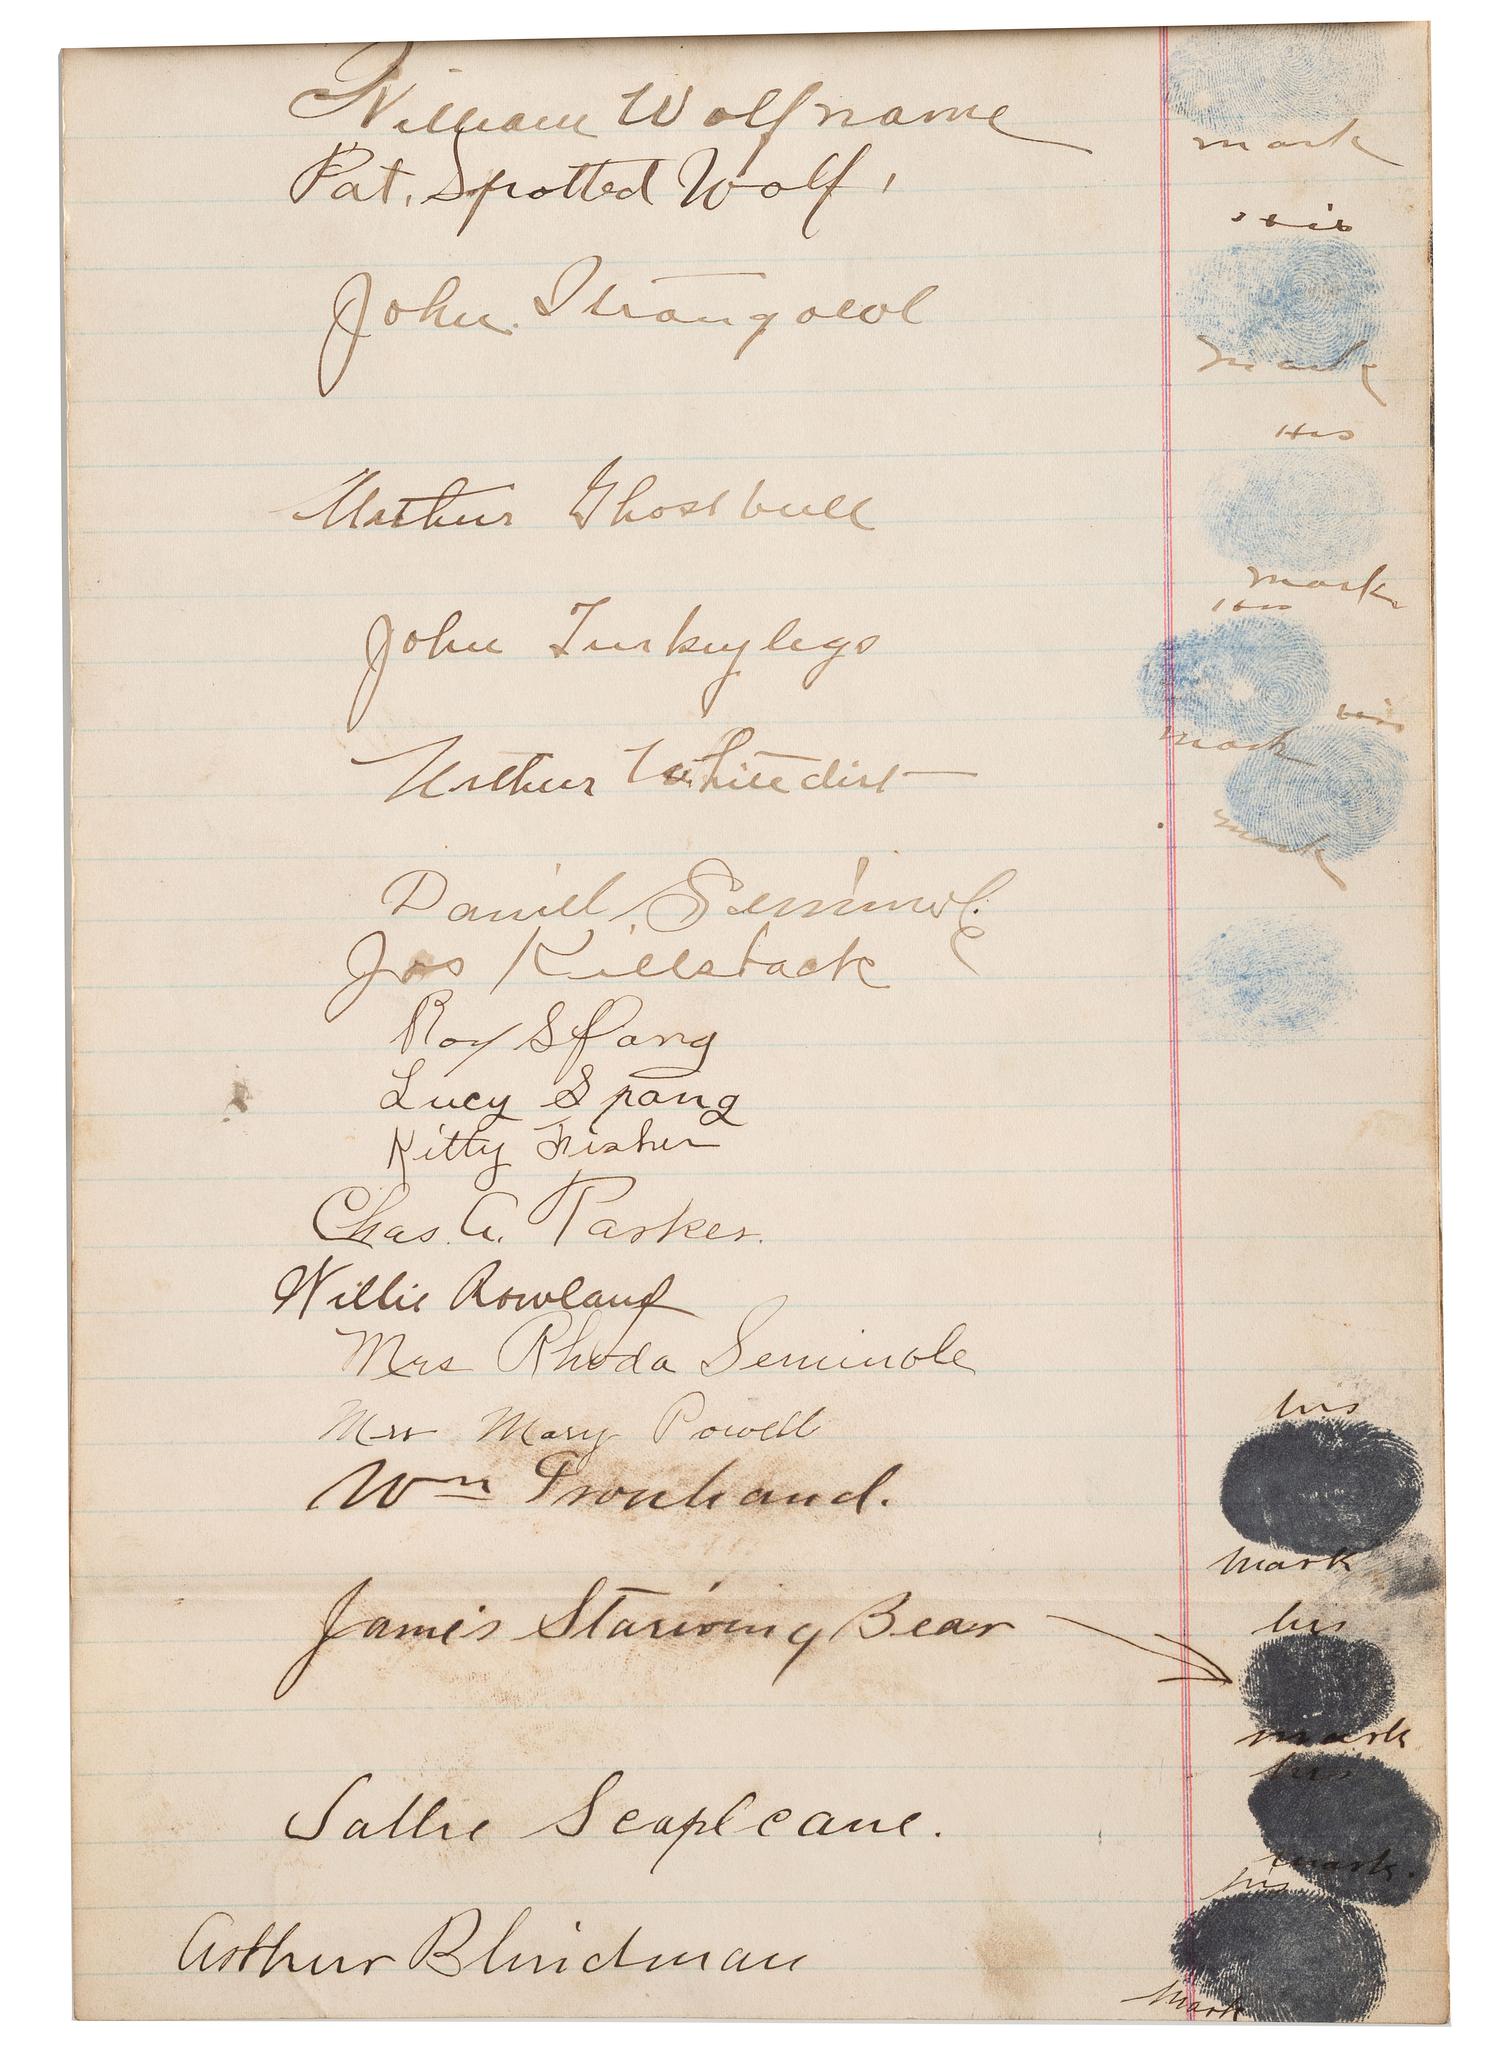 William Wolfname
mark
Pat. Spotted Wolf,
his
John. Strangowl
mark
His
Arthur Ghostbull
mark
his
John Turkeylegs
his
mark
Arthur Whitedirt
mark
Daniel Seminole
Jas Killsback
Roy Spang
Lucy Spang
Kitty Fisher
Chas. A. Parker.
Willie Rowland
Mrs Rhoda Seminole
his
Mrs Mary Powell
Wm Ironhand.
mark
his
James Starving Bear
mark
his
Sallie Scaplcane.
mark.
his
Arthur Blindman
mark